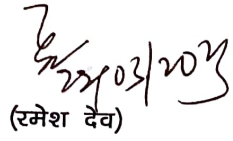 22/03/2023
(रमेश देव)